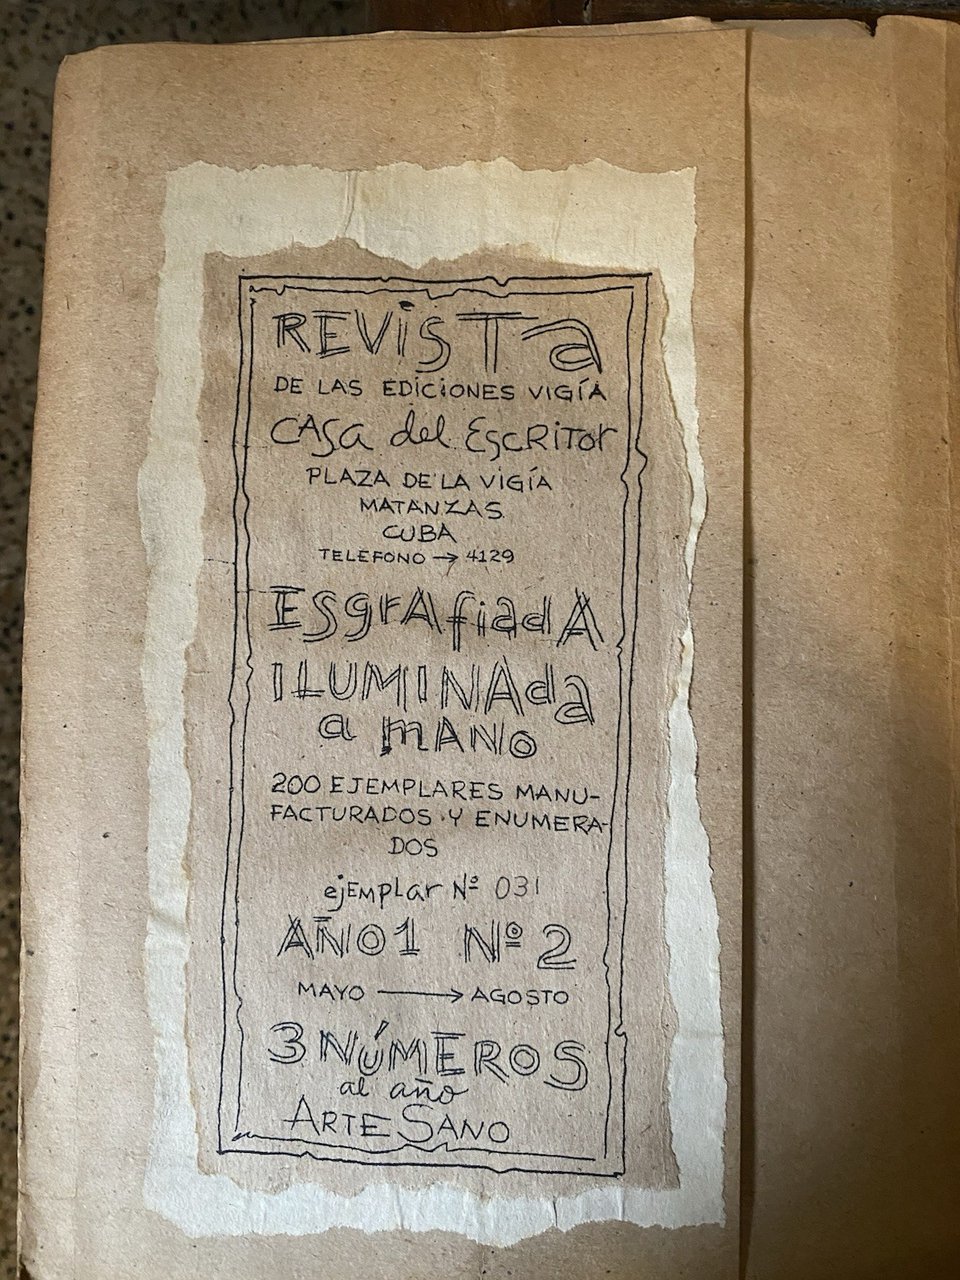 REViSTa
DE LAS EDICiONES VIGÍA
CASa del EscRiTor
PLAZA DE LA VIGÍA
MATANZAS
CUBA
TELEFONO → 4129
ESgrAfiadA
ILUMINAda
a mANo
200 EJEMPLARES MANU-
FACTURADOS Y ENUMERA-
DOS
ejEMplar Nº 031
AÑO 1 Nº 2
MAYO → AGOSTO
3 NÚMEROS
al año
ARTESANO